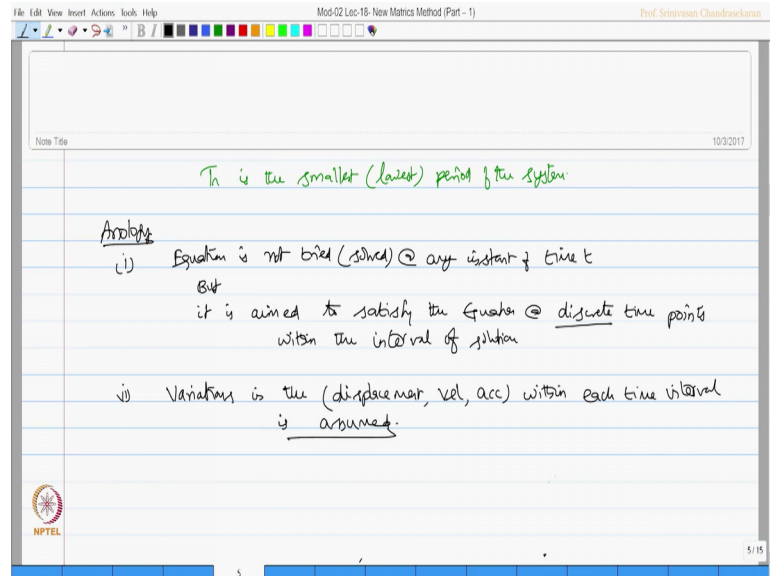 File Edit View Insert Actions Tools Help
Mod-02 Lec-18- New Matrics Method (Part – 1)
Prof. Srinivasan Chandrasekaran
B I
Note Title
10/3/2017
Tn is the smallest (lowest) period of the system.
Analogy
(i) Equation is not tried (solved) @ any instant of time t
But
it is aimed to satisfy the Equation @ discrete time points
within the interval of solution
ii) Variations is the (displacement, vel, acc) within each time interval
is assumed.
NPTEL
5 / 15
5